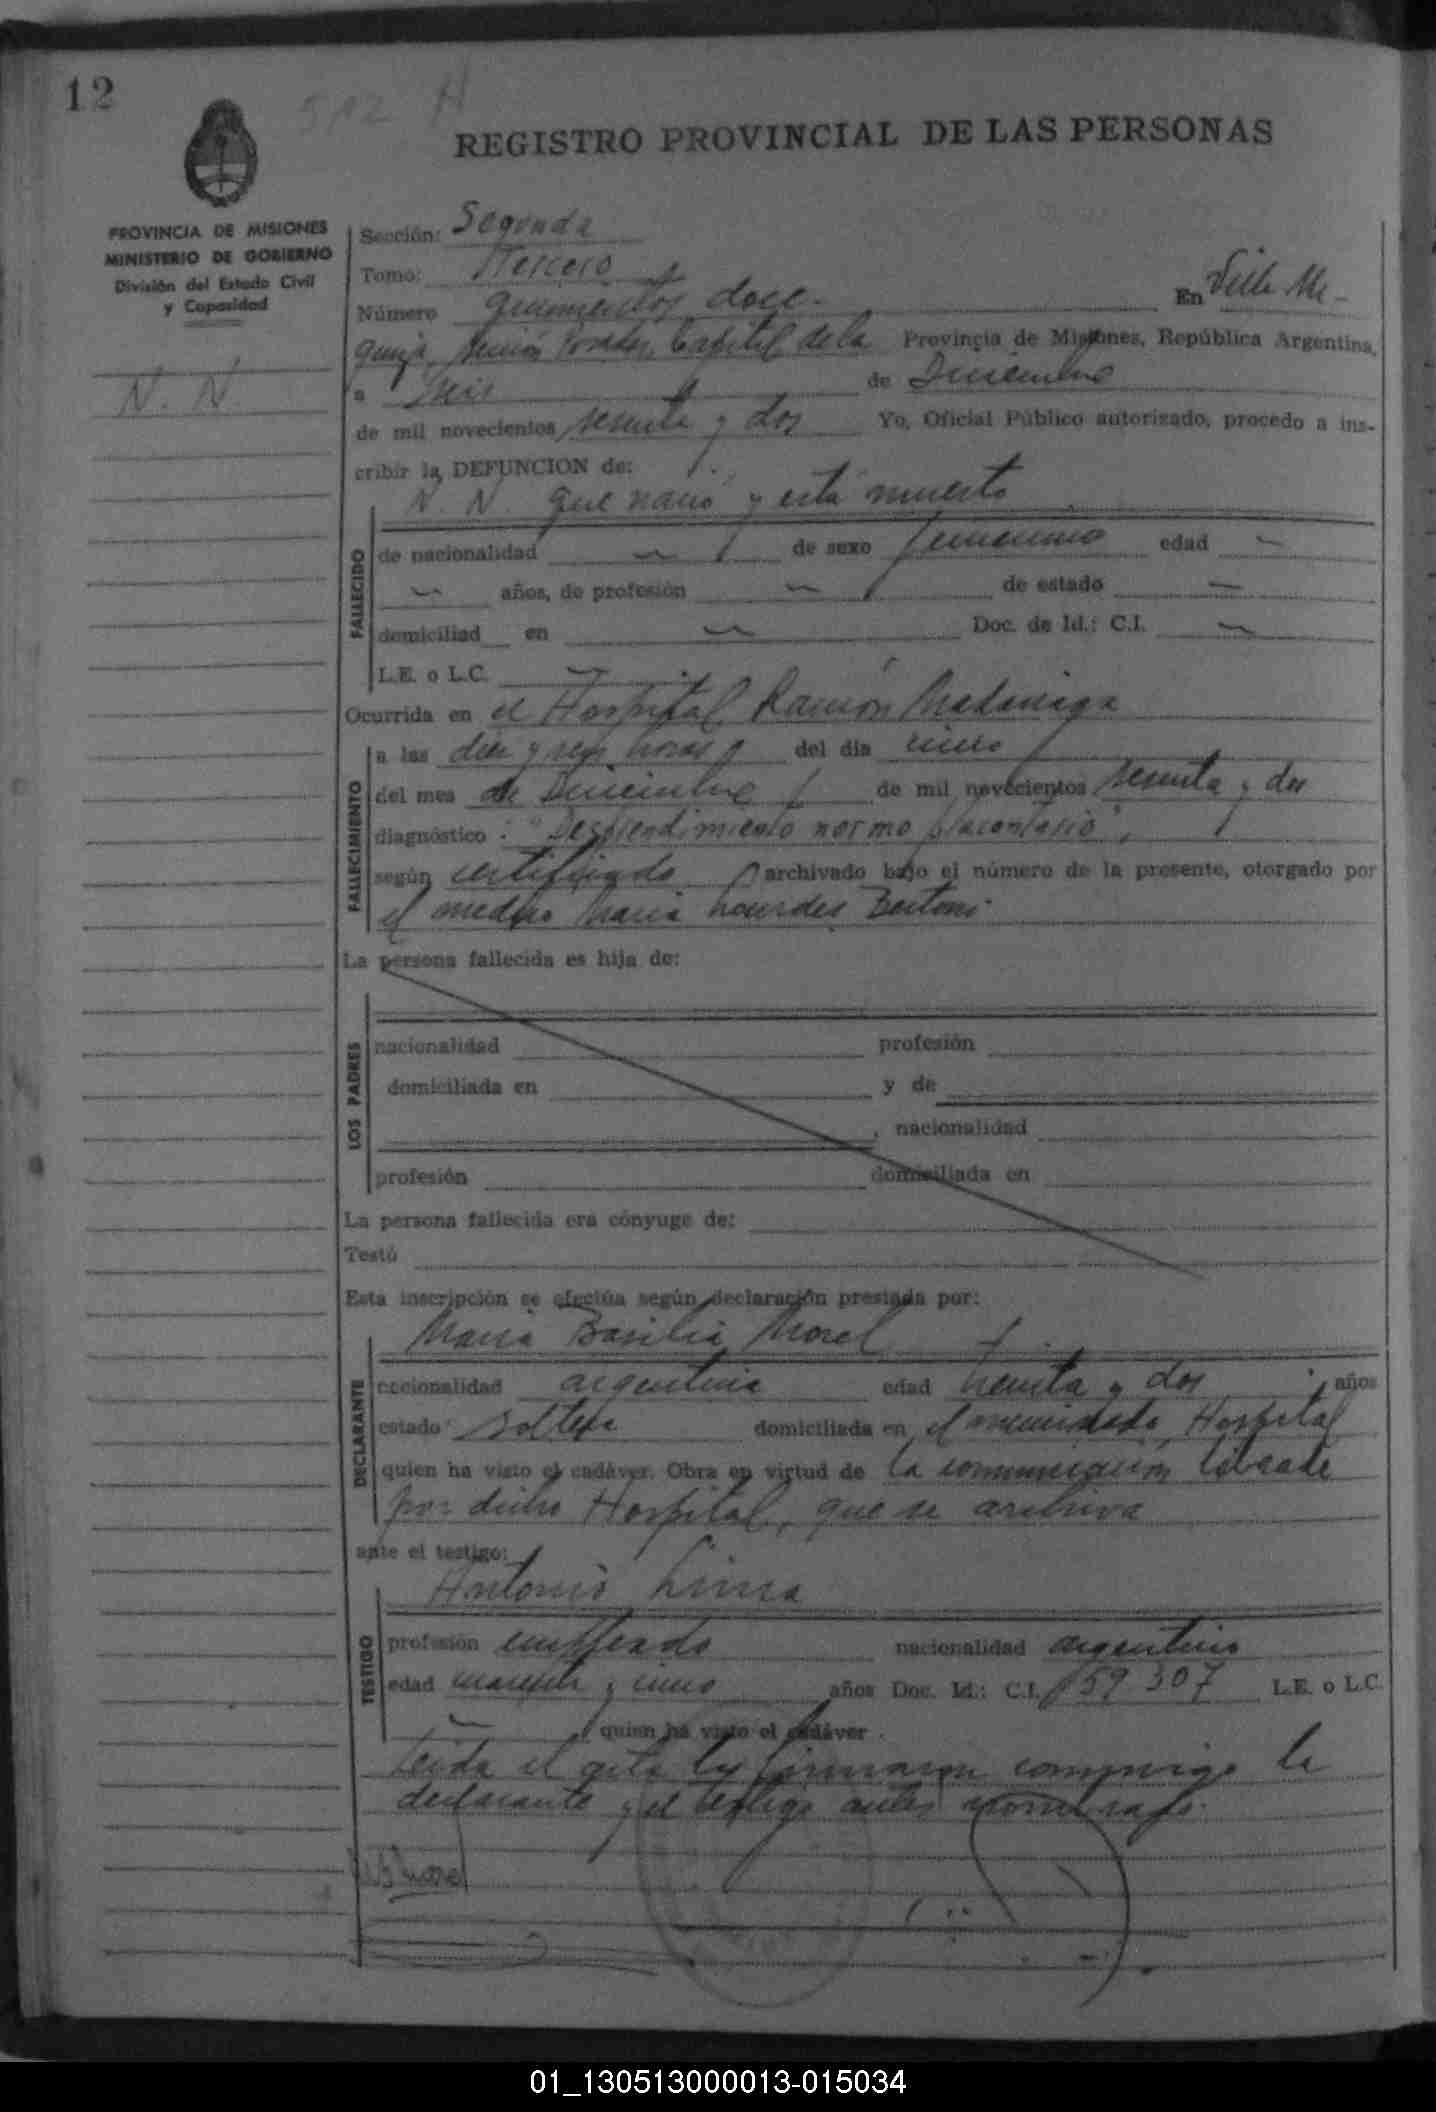 12
512 H
REGISTRO PROVINCIAL DE LAS PERSONAS
PROVINCIA DE MISIONES
MINISTERIO DE GOBIERNO
División del Estado Civil
y Capacidad
N. N.
Sección: Segunda
Tomo: Tercero
Número quinientos doce.- En Villa Ur-
quiza, Capital de la Provincia de Misiones, República Argentina,
a seis de Diciembre
de mil novecientos sesenta y dos Yo, Oficial Público autorizado, procedo a ins-
cribir la DEFUNCION de:
N. N. que nació y está muerto
FALLECIDO
de nacionalidad — de sexo femenino edad —
— años, de profesión — de estado —
domiciliad en — Doc. de Id.: C.I. —
L.E. o L.C. —
Ocurrida en el Hospital Ramón Madariaga
FALLECIMIENTO
a las diez y seis horas del día cinco
del mes de Diciembre de mil novecientos sesenta y dos
diagnóstico : "Desprendimiento normo placentario",
según certificado archivado bajo el número de la presente, otorgado por
el médico María Lourdes Bertoni.
La persona fallecida es hija de:
LOS PADRES
nacionalidad profesión
domiciliada en y de
, nacionalidad
profesión domiciliada en
La persona fallecida era cónyuge de:
Testó
Esta inscripción se efectúa según declaración prestada por:
María Basilia Morel
DECLARANTE
nacionalidad argentina edad treinta y dos años
estado soltera domiciliada en el mencionado Hospital
quien ha visto el cadáver. Obra en virtud de la comunicación librada
por dicho Hospital, que se archiva
ante el testigo:
Antonio Lima
TESTIGO
profesión empleado nacionalidad argentino
edad cuarenta y cinco años Doc. Id.: C.I. 159307 L.E. o L.C.
— quien ha visto el cadáver .
Leída el acta la firmaron conmigo la
declarante y el testigo antes nombrado.
M B Morel
01_130513000013-015034